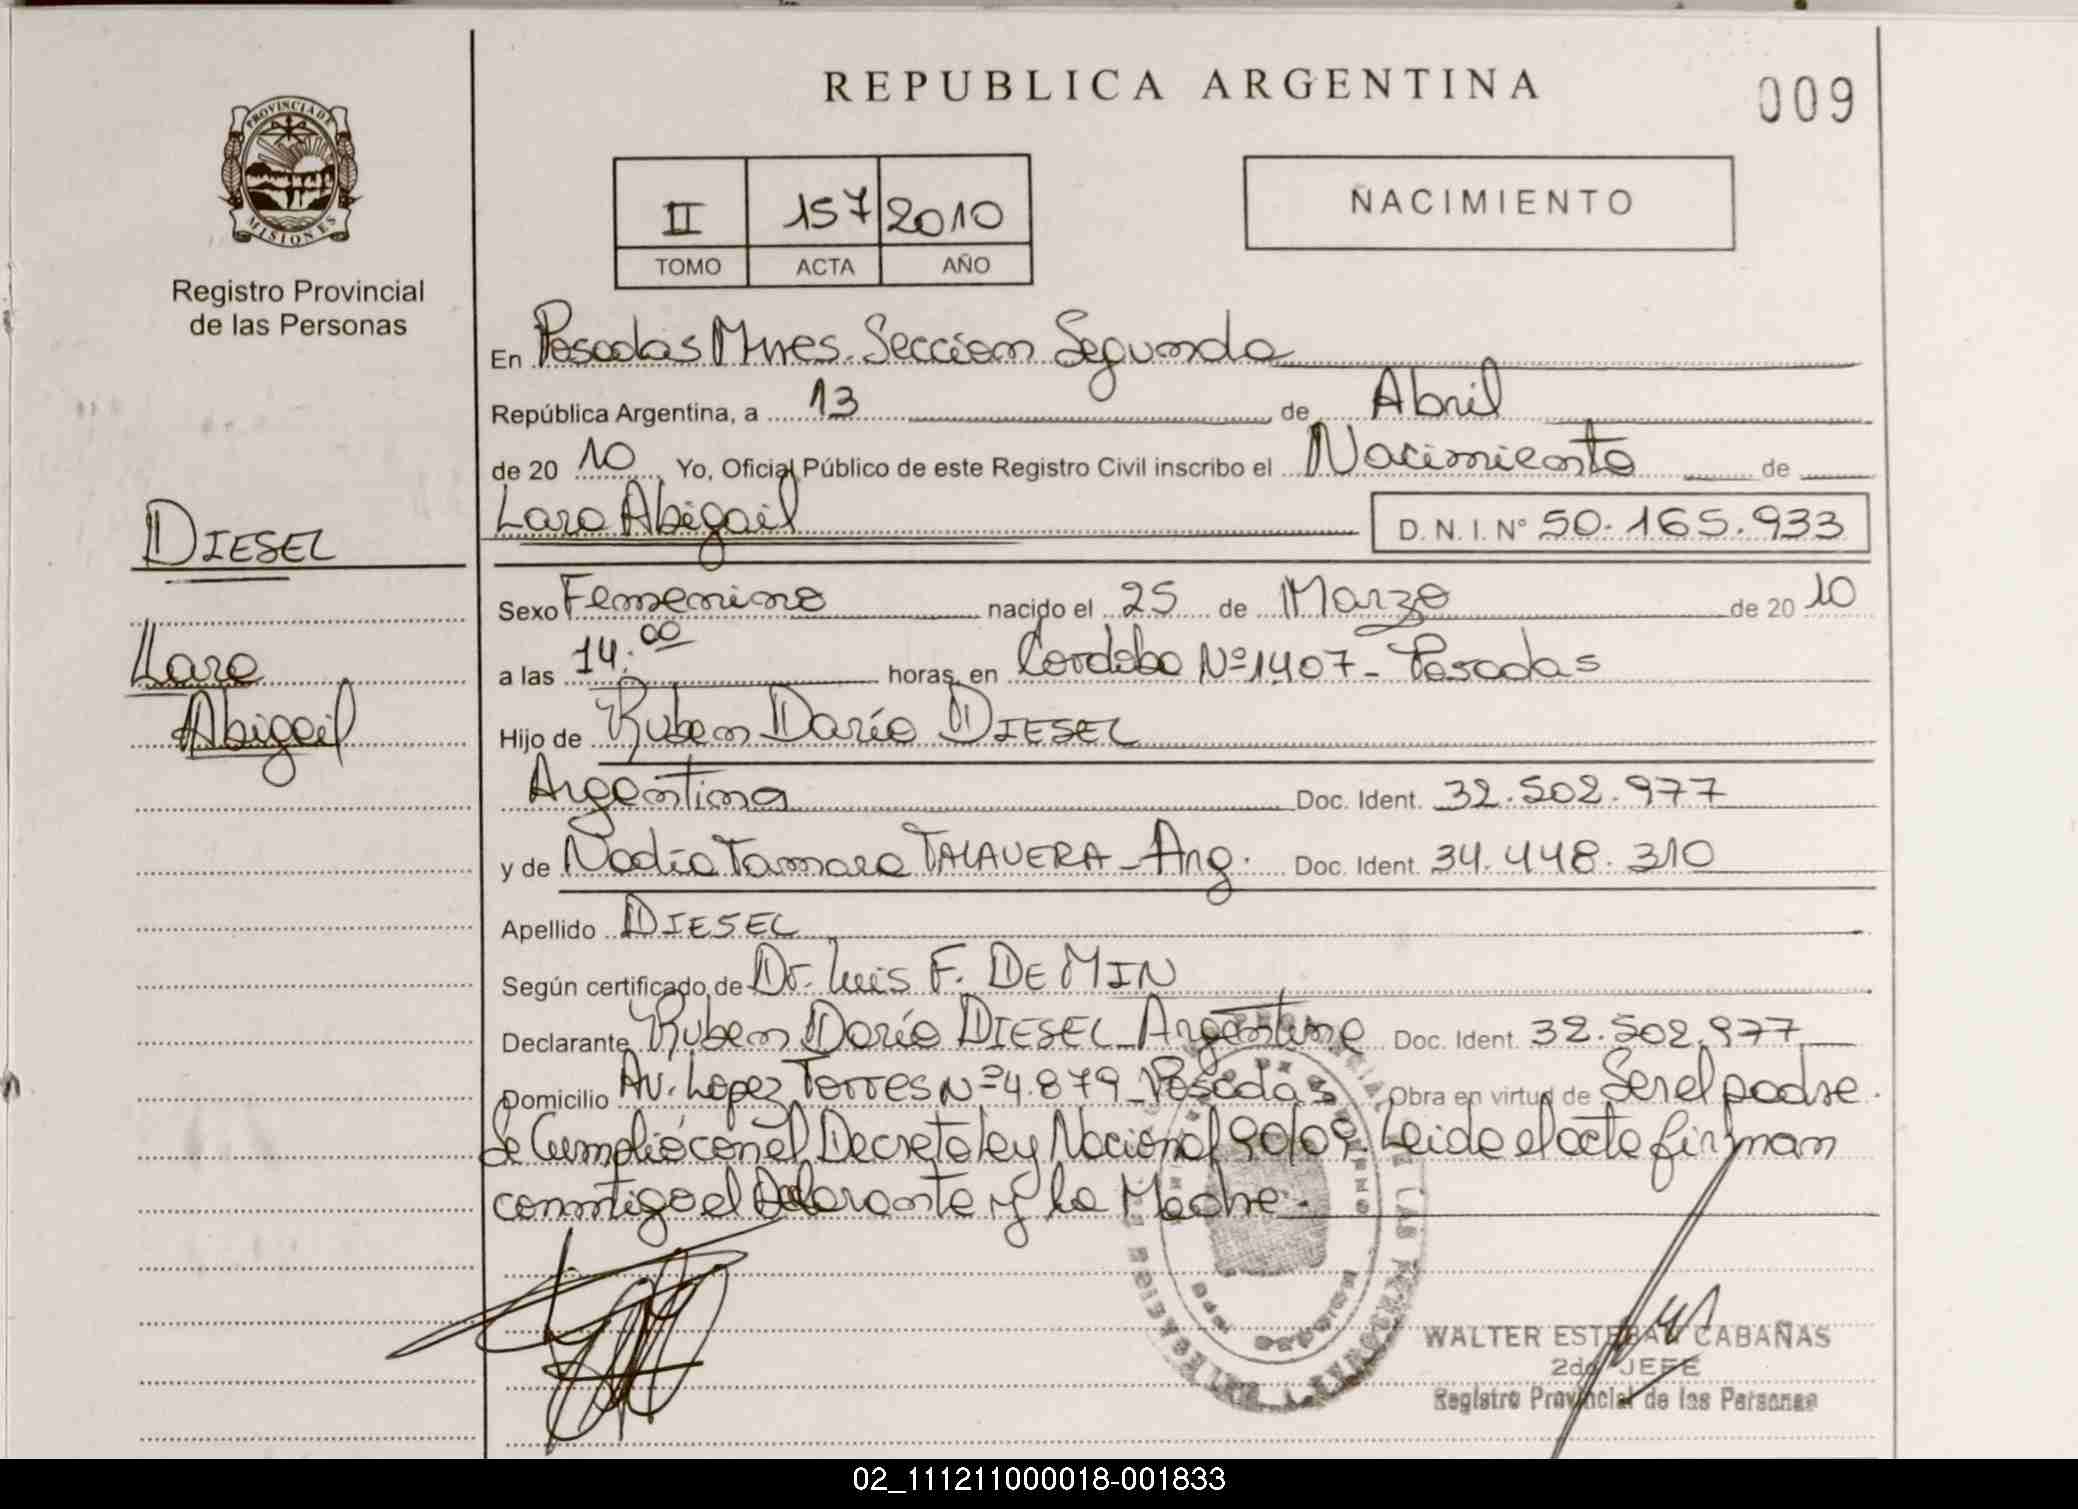 REPUBLICA ARGENTINA
009
PROVINCIA DE
MISIONES
Registro Provincial
de las Personas
II 157 2010
TOMO ACTA AÑO
NACIMIENTO
En Posadas Mnes. Seccion Segunda
República Argentina, a 13 de Abril
de 20 10 Yo, Oficial Público de este Registro Civil inscribo el Nacimiento de
Lara Abigail D. N. I. N° 50.165.933
DIESEL
Lara
Abigail
Sexo Femenino nacido el 25 de Marzo de 20 10
a las 14:00 horas, en Cordoba Nº 1407 - Posadas
Hijo de Ruben Darío DIESEL
Argentina Doc. Ident. 32.502.977
y de Nadia Tamara TALAVERA - Arg. Doc. Ident. 34.448.310
Apellido DIESEL
Según certificado de Dr. Luis F. DE MIN
Declarante Ruben Darío DIESEL - Argentina Doc. Ident. 32.502.977
Domicilio Av. Lopez Torres Nº 4.879 - Posadas Obra en virtud de Ser el padre.
Se Cumplió con el Decreto ley Nacional 90/09. Leida el acta firman
conmtigo el Declarante y la Madre.
WALTER ESTEBAN CABAÑAS
2do JEFE
Registro Provincial de las Personas
02_111211000018-001833